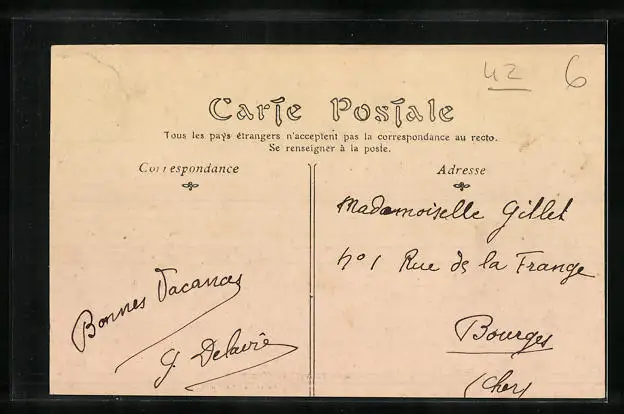 42 6
Carte Postale
Tous les pays étrangers n'acceptent pas la correspondance au recto.
Se renseigner à la poste.
Correspondance
Bonnes Vacances
G. Delavie
Adresse
Mademoiselle Gillet
Nº 1 Rue de la Frange
Bourges
(Cher)